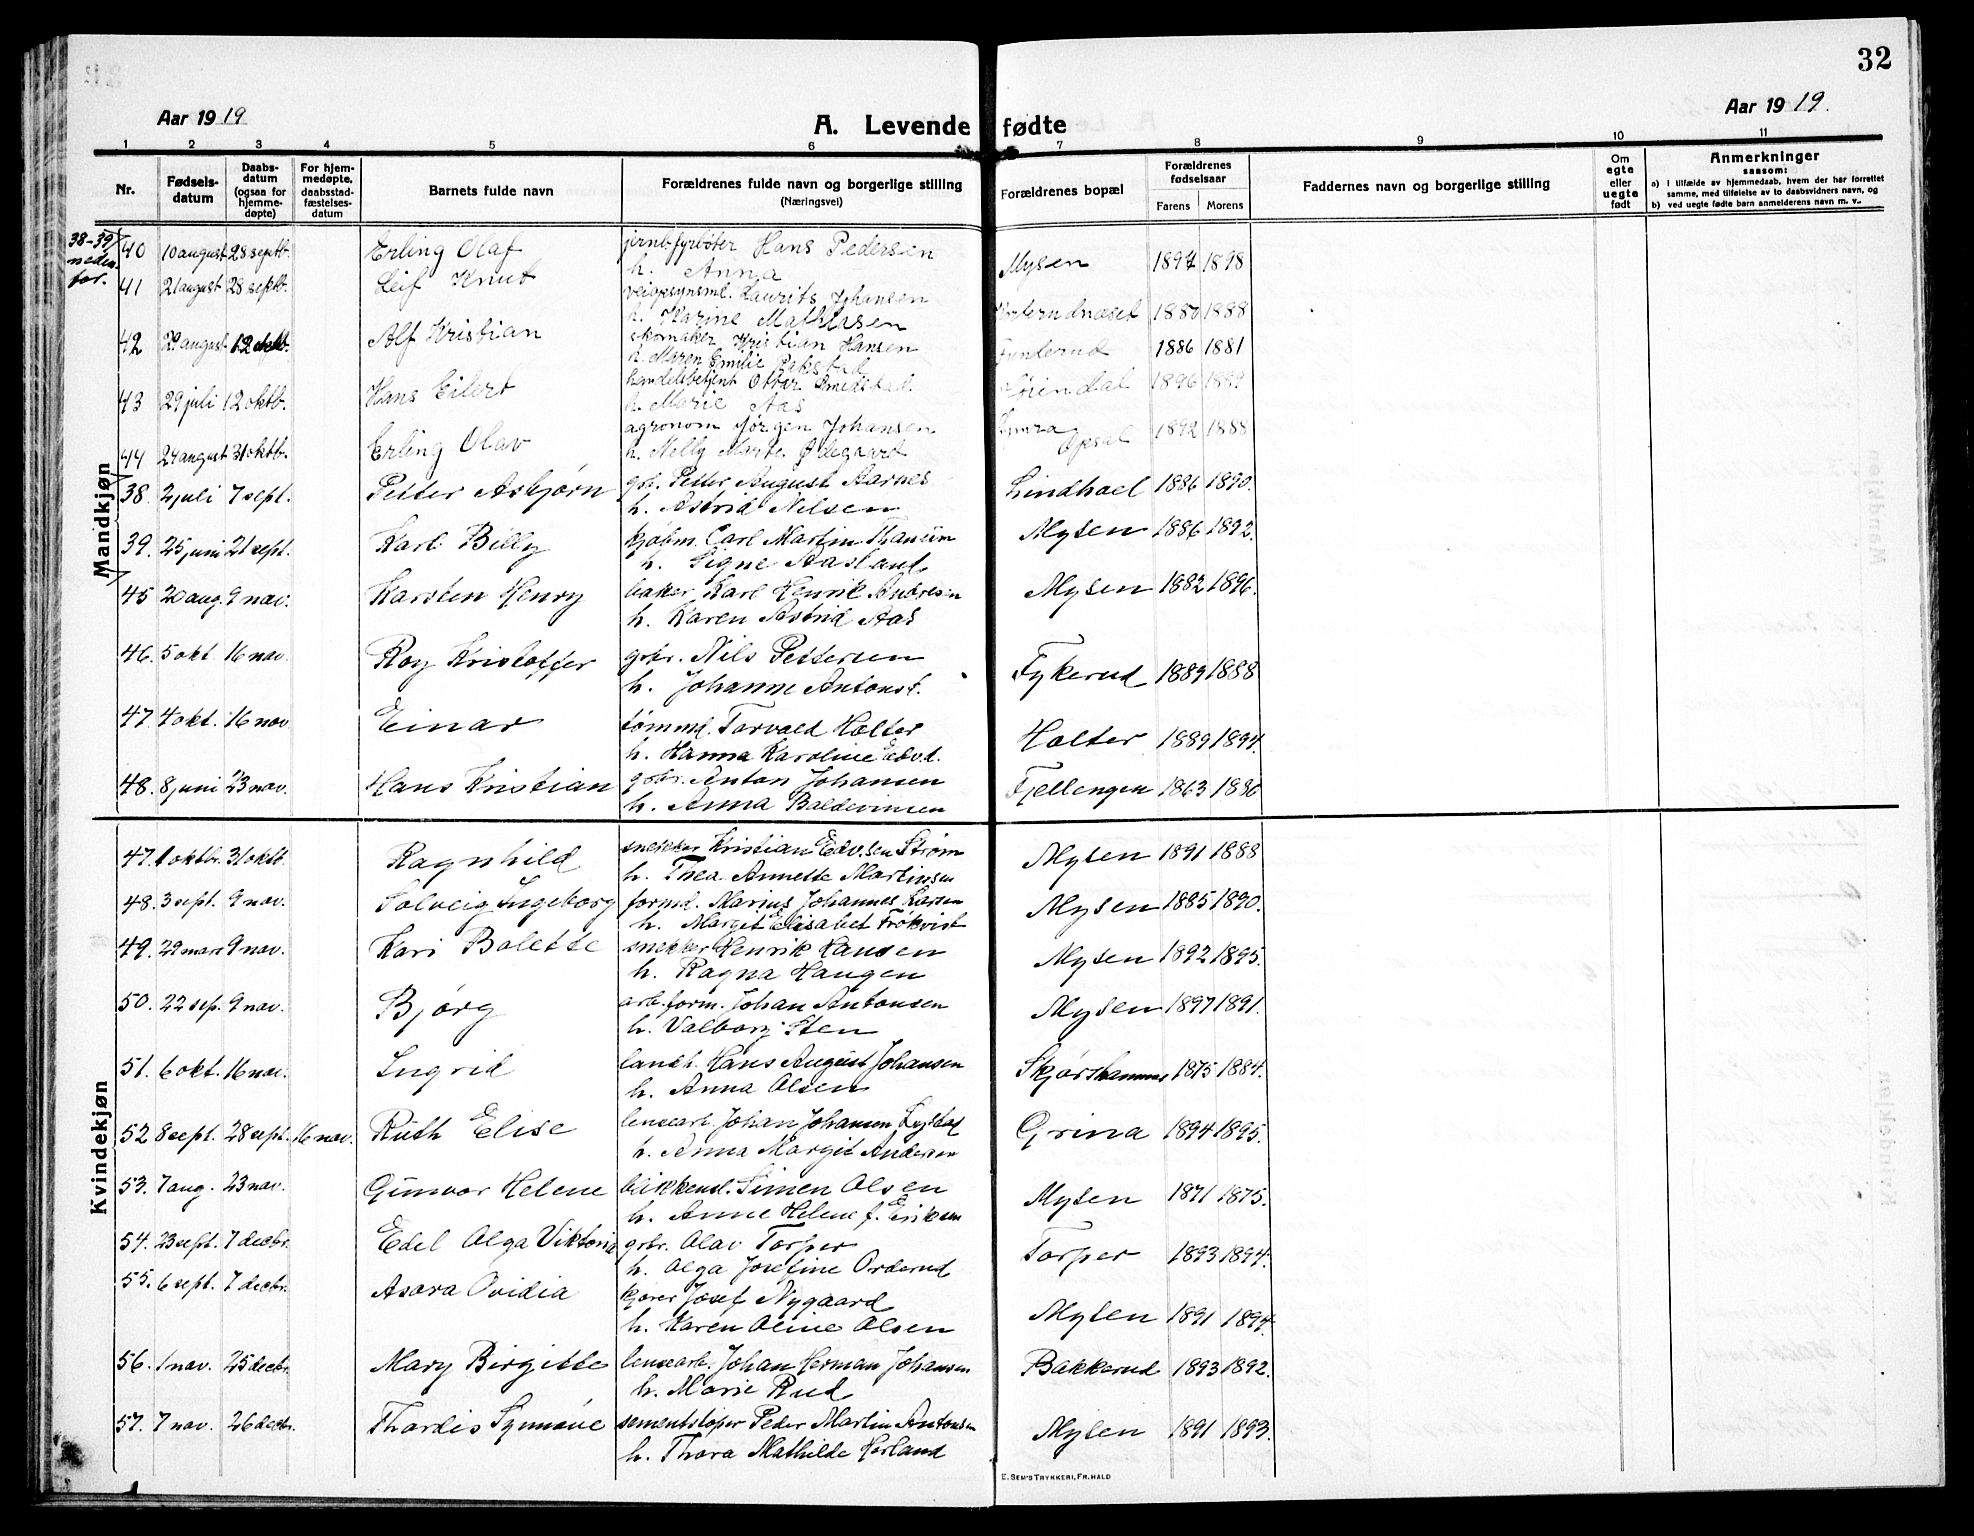 32
Aar 1919
A. Levende fødte
Aar 1919.
1 2 3 4 5 6 7 8 9 10 11
Nr.
Fødsels-datum
Daabs-datum (ogsaa for hjemme-døpte)
For hjem-medøpte, daabsstad-fæstelses-datum
Barnets fulde navn
Forældrenes fulde navn og borgerlige stilling
(Næringsvei)
Forældrenes bopæl
Forældrenes fødselsaar
Farens Morens
Faddernes navn og borgerlige stilling
Om egte eller uegte født
Anmerkninger
saasom:
a) i tilfælde av hjemmedaab, hvem der har forrettet samme, med tilføielse av to daabsvidners navn, og
b) ved uegte fødte barn anmelderens navn m. v.
38-39 neden-for.
Mandkjøn
40 10 august 28 septb. Erling Olaf jernb.fyrbøter Hans Pedersen Mysen 1897 1898
h. Anna
41 21 august 28 septb. Leif Knut veiopsynsml. Laurits Johansen 1880 1888
h. Karine Mathiasen
42 29 august 12 oktb. Alf Kristian skomaker Kristian Hansen 1886 1881
h. Maren Emilie Rakstad
43 29 juli 12 oktb. Hans Eilert handelsbetjent Ottar Smedstad 1896 1899
h. Marie Aas
44 24 august 31 oktbr. Erling Olav agronom Jørgen Johansen Opsal 1892 1888
h. Nelly Marte Ødegaard
38. 2 juli 7 sept. Petter Asbjørn gbr. Petter August Aarnes Lindhoel 1886 1890.
h. Astrid Nilsen
39. 25 juni 21 sept. Karl Billy kjøbm. Carl Martin Thanüm Mysen 1886 1892.
h. Signe Aasland
45 20 aug. 9 nav. Karsten Henry baker Karl Henrik Andresen Mysen 1882 1896.
h. Karen Astrid Aas
46. 5 okt. 16 nav. Roy Kristoffer grbr. Nils Pettersen Fykerud 1889 1888
h. Johanne Antonst.
47. 4 okt. 16 nov Einar tømmd. Torvald Holter Holter 1889 1894.
h. Hanna Karoline Edv.d.
48. 8 juni 23 nov. Hans Kristian grbr. Anton Johansen Fjellengen 1863 1880
h. Anna Baldevinsen
Kvindekjøn
47. 1 oktbr. 31 oktb. Ragnhild snekker Kristian Edv.sen Strøm Mysen 1891 1888
h. Thea Annette Martinsen
48. 3 sept. 9 nov. Solveig Ingeborg formd. Marius Johannes Larsen Mysen 1885 1890.
h. Margit Elisabet Frökvist
49. 29 mars 9 nav. Kari Bolette snekker Henrik Hansen Mysen 1892 1895.
h. Ragna Haugen
50. 22 sep. 9 nav. Bjørg arb.form. Johan Antonsen Mysen 1897 1891.
h. Valborg Sten
51. 6 okt. 16 nov. Ingrid landh. Hans August Johansen 1875 1884.
h. Anna Olsen
52 8 sept. 28 sept. 16 nov. Ruth Elise lensearb. Johan Johansen Grina 1894 1895.
h. Anna Margit Andersen
53. 7 aug. 23 nav. Gunvor Helene blikkensl. Simen Olsen Mysen 1871 1875.
h. Anne Helene f. Eriksen
54. 23 sept. 7 decbr. Edel Olga Viktoria grbr. Olav Torper Torper 1893 1894.
h. Olga Josefine Orderud
55. 6 sept. 7 decbr. Asora Ovidia kjører Josef Nygaard Mysen 1891 1894.
h. Karen Oline Olsen
56. 1 nav. 25 decbr. Mary Birgitte lensearb. Johan Herman Johansen Bakkerud 1893 1892.
h. Marie Rud
57. 7 nov. 26 decbr. Thordis Synnøve sementstøper Peder Martin Antonsen Mysen 1891 1893.
h. Thora Mathilde Horland
E. SEM'S TRYKKERI, FR.HALD